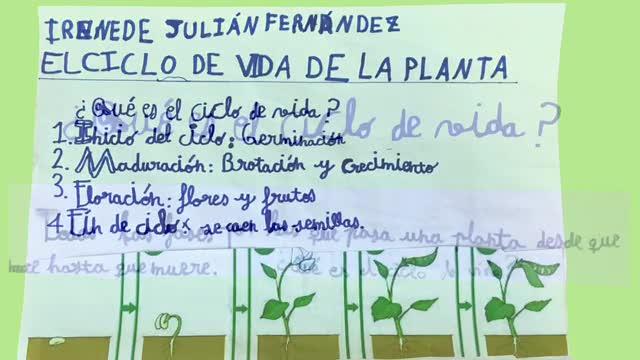 IRENE DE JULIÁN FERNÁNDEZ
EL CICLO DE VIDA DE LA PLANTA
¿Qué es el ciclo de vida?
¿Qué es el ciclo de vida?
1. Inicio del ciclo: Germinación
2. Maduración: Brotación y crecimiento
3. Floración: flores y frutos
4. Fin de ciclo: se caen las semillas.
Todas las fases por las que pasa una planta desde que
nace hasta que muere.
¿Qué es el ciclo de vida?